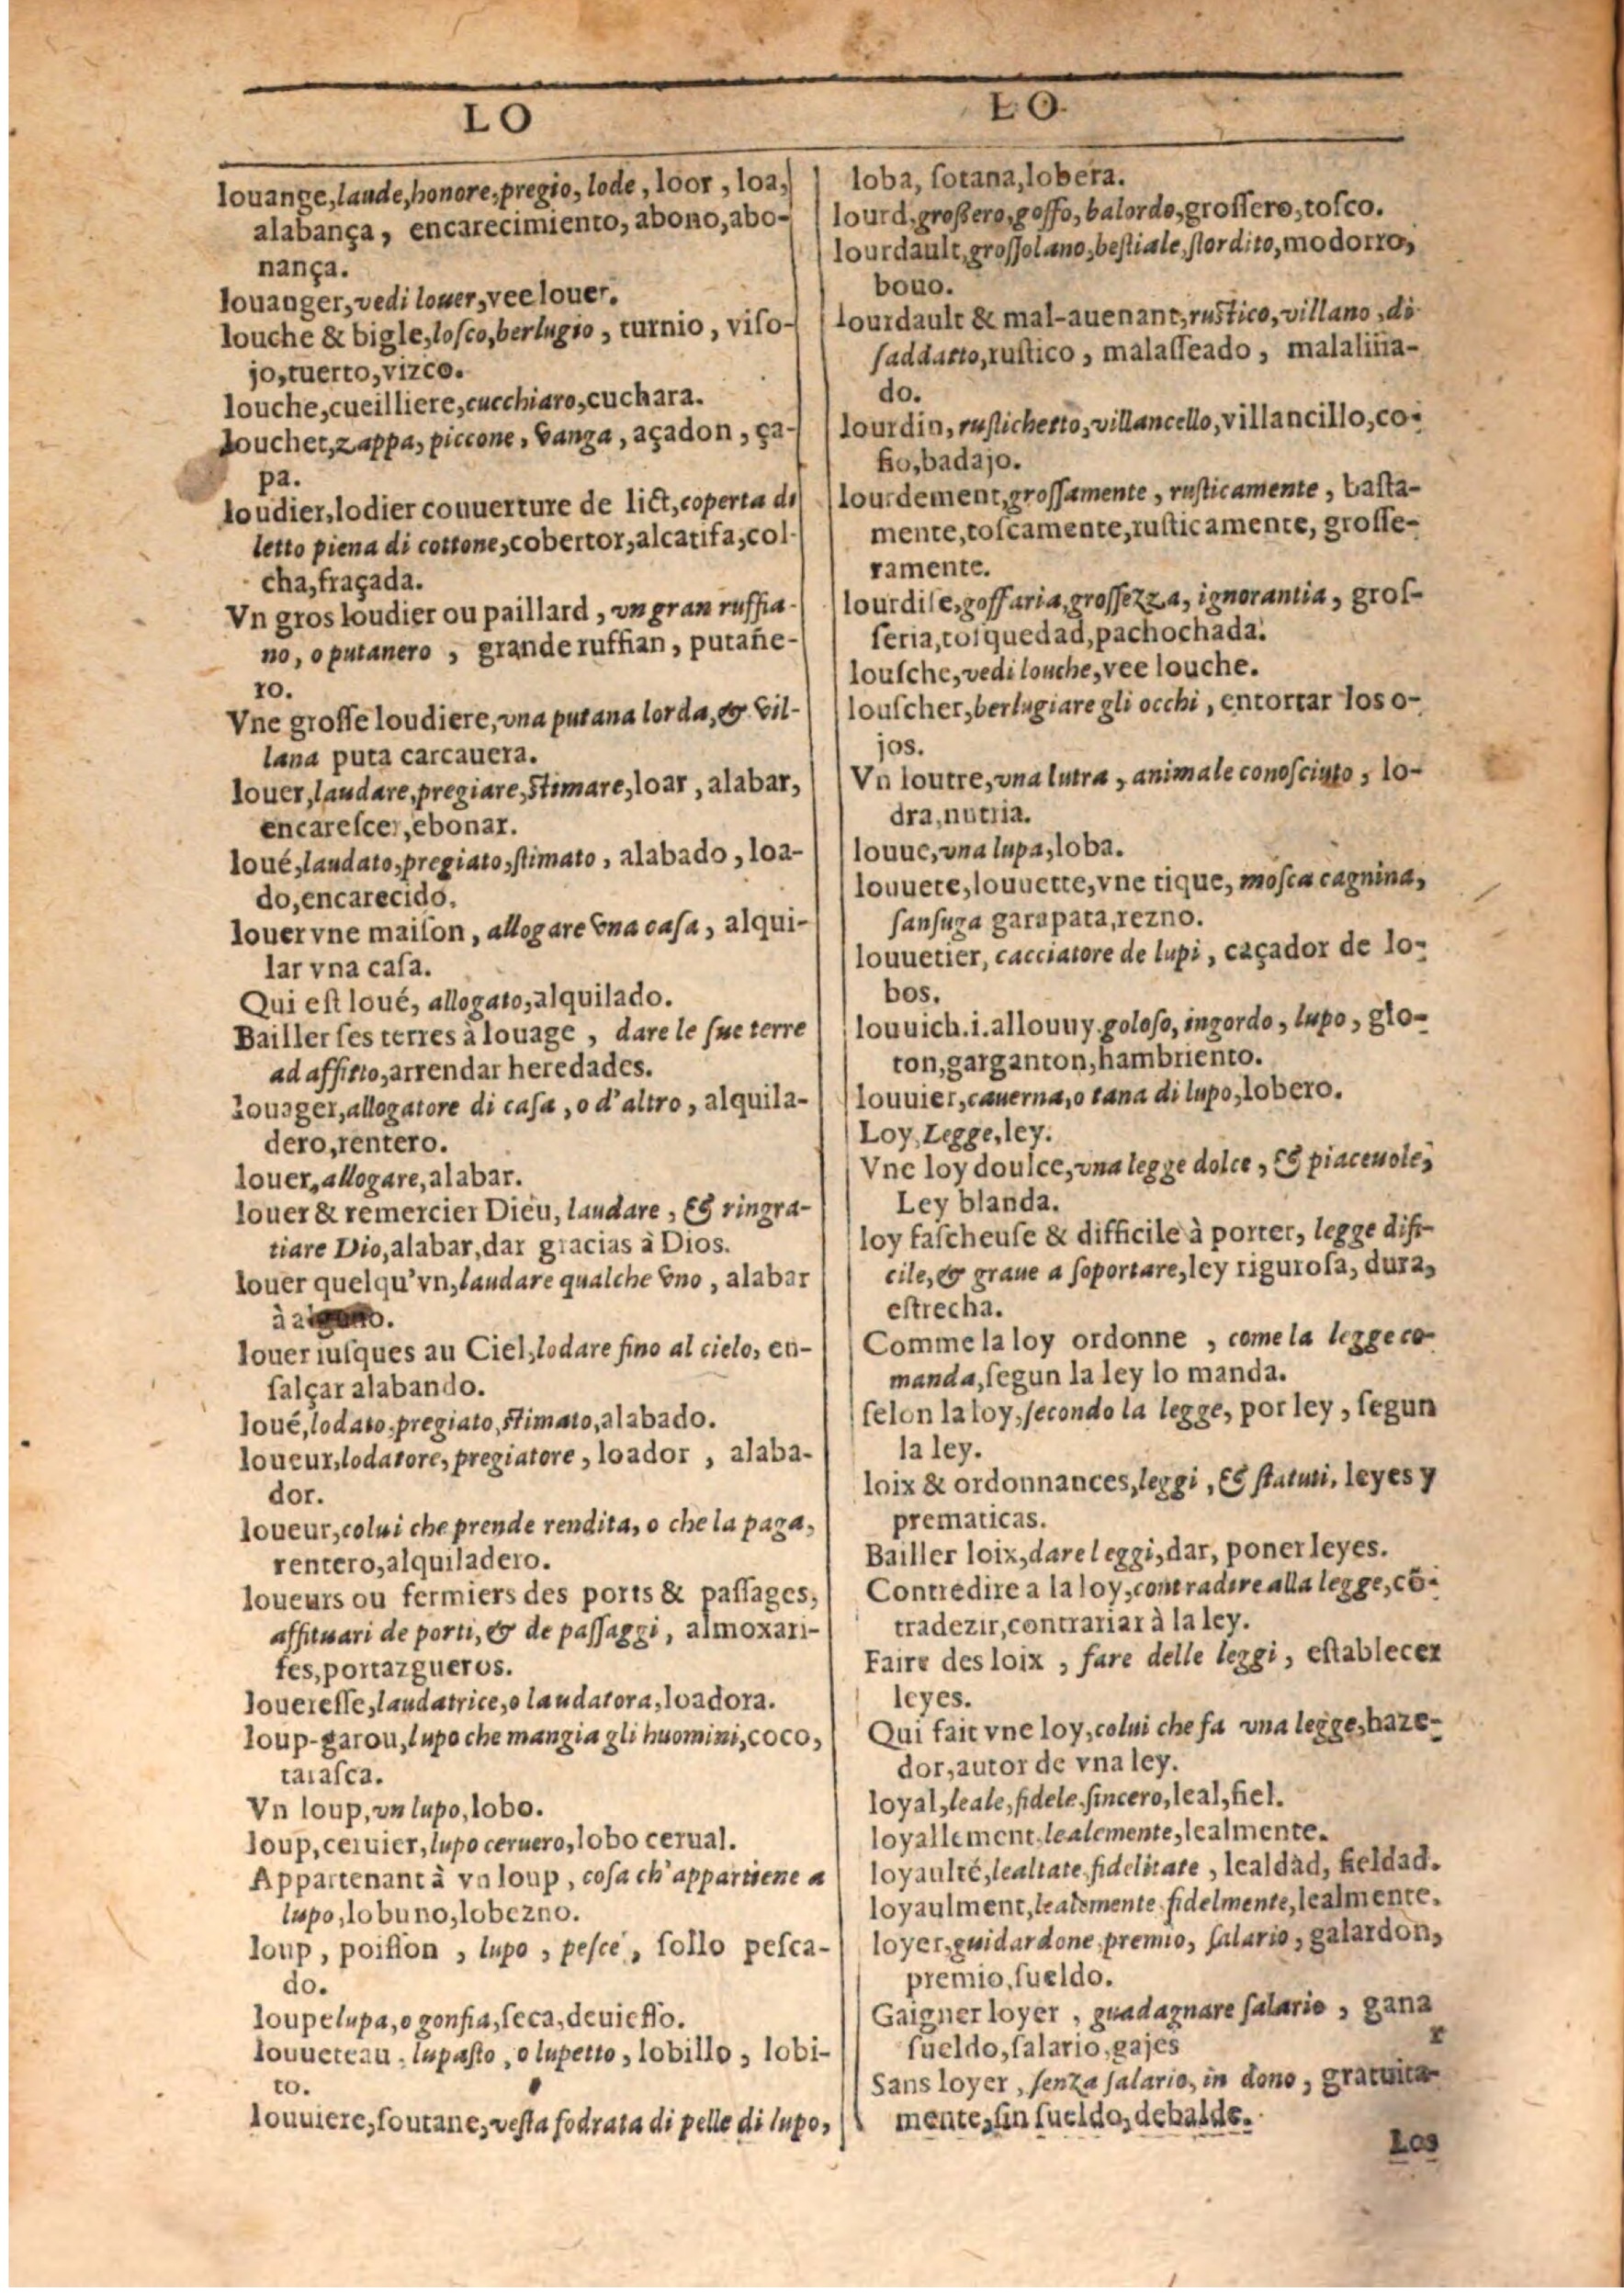 LO
louange,laude,honore,pregio,lode, loor, loa,
alabança, encarecimiento, abono,abo-
nança.
louanger,vedi louer,vee louer.
louche & bigle,loſco,berlugio, turnio, viſo-
jo,tuerto,vizco.
louche,cueilliere,cucchiaro,cuchara.
louchet,zappa,piccone, vanga, açadon, ça-
pa.
loudier,lodier couuerture de lict,coperta di
letto piena di cottone,cobertor,alcatifa,col-
cha,fraçada.
Vn gros loudier ou paillard, vn gran ruffia-
no, o putanero, grande ruffian, putañe-
ro.
Vne groſſe loudiere,vna putana lorda,& vil-
lana puta carcauera.
louer,laudare,pregiare,ſtimare,loar, alabar,
encareſcer,ebonar.
loué,laudato,pregiato,ſtimato, alabado, loa-
do,encarecido.
louer vne maiſon, allogare vna caſa, alqui-
lar vna caſa.
Qui eſt loué, allogato,alquilado.
Bailler ſes terres à louage, dare le ſue terre
ad affitto,arrendar heredades.
louager,allogatore di caſa, o d'altro, alquila-
dero,rentero.
louer,allogare,alabar.
louer & remercier Dieu, laudare, & ringra-
tiare Dio,alabar,dar gracias à Dios.
louer quelqu'vn,laudare qualche vno, alabar
à
louer iuſques au Ciel,lodare fino al cielo, en-
ſalçar alabando.
loué,lodato,pregiato,ſtimato,alabado.
loueur,lodatore,pregiatore, loador, alaba-
dor.
loueur,colui che prende rendita, o che la paga,
rentero,alquiladero.
loueurs ou fermiers des ports & paſſages,
affituari de porti,& de paſſaggi, almoxari-
fes,portazgueros.
louereſſe,laudatrice,o laudatora,loadora.
loup-garou,lupo che mangia gli huomini,coco,
taraſca.
Vn loup,vn lupo,lobo.
loup,ceruier,lupo ceruero,lobo cerual.
Appartenant à vn loup, coſa ch'appartiene a
lupo,lobuno,lobezno.
loup, poiſſon, lupo, peſce, ſollo peſca-
do.
loupe lupa,o gonfia,ſeca,deuieſſo.
louueteau, lupaſto, o lupetto, lobillo, lobi-
to.
louuiere,ſoutane,veſta fodrata di pelle di lupo,
LO.
loba, ſotana,lobera.
lourd,groſſero,goffo, balordo,groſſero,toſco.
lourdault,groſſolano,beſtiale,ſtordito,modorro,
bouo.
lourdault & mal-auenant,ruſtico, villano, di
ſaddatto,ruſtico, malaſſeado, malaliña-
do.
lourdin, ruſtichetto,villancello,villancillo,co-
fio,badajo.
lourdement,groſſamente, ruſticamente, baſta-
mente,toſcamente,ruſticamente, groſſe-
ramente.
lourdiſe,goffaria,groſſezza, ignorantia, groſ-
ſeria,toſquedad,pachochada.
louſche,vedi louche,vee louche.
louſcher,berlugiare gli occhi, entortar los o-
jos.
Vn loutre,vna lutra, animale conoſciuto, lo-
dra,nutria.
louue,vna lupa,loba.
louuete,louuette,vne tique, moſca cagnina,
ſanſuga garapata,rezno.
louuetier, cacciatore de lupi, caçador de lo-
bos.
louuich.i.allouuy.goloſo, ingordo, lupo, glo-
ton,garganton,hambriento.
louuier,cauerna,o tana di lupo,lobero.
Loy,Legge,ley.
Vne loy doulce,vna legge dolce, & piaceuole,
Ley blanda.
loy faſcheuſe & difficile à porter, legge difi-
cile,& graue a ſoportare,ley riguroſa, dura,
eſtrecha.
Comme la loy ordonne, come la legge co-
manda,ſegun la ley lo manda.
ſelon la loy,ſecondo la legge, por ley, ſegun
la ley.
loix & ordonnances,leggi, & ſtatuti, leyes y
prematicas.
Bailler loix,dare leggi,dar, poner leyes.
Contredire a la loy,contradire alla legge,cõ-
tradezir,contrariar à la ley.
Faire des loix, fare delle leggi, eſtablecer
leyes.
Qui fait vne loy,colui che fa vna legge,haze-
dor,autor de vna ley.
loyal,leale,fidele.ſincero,leal,fiel.
loyallement.lealemente,lealmente.
loyaulté,lealtate.fidelitate, lealdad, fieldad.
loyaulment,lealemente.fidelmente,lealmente.
loyer,guidardone.premio, ſalario, galardon,
premio,ſueldo.
Gaigner loyer, guadagnare ſalario, gana
r
ſueldo,ſalario,gajes
Sans loyer, ſenza ſalario, in dono, gratuita-
mente,ſin ſueldo,debalde.
Los